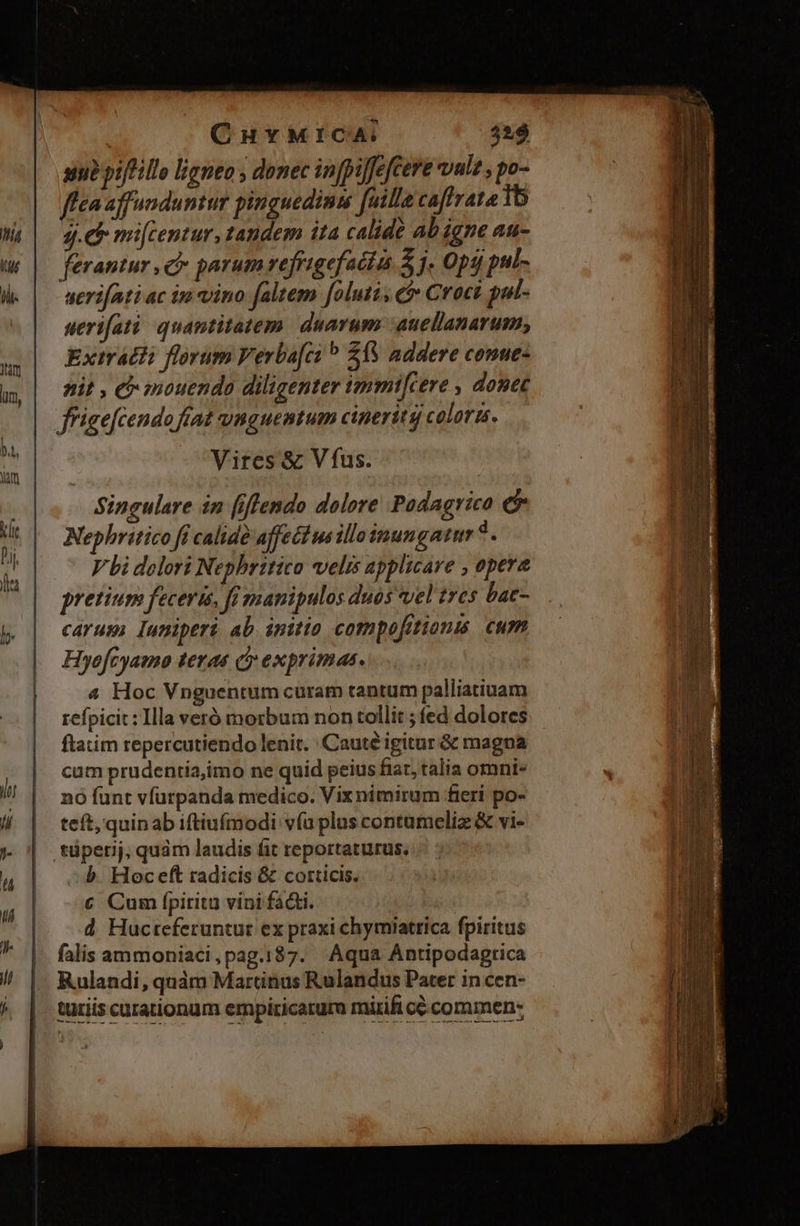 CHYMICAE 329
nuè pistillo ligneo, donec inspissescere vult, po-
stea affunduntur pinguedinis suillæ castratæ ℔
ij. & miscentur, tandem ita calidè ab igne au-
ferantur, & parum refrigefactis ℥ j. Opij pul-
uerisati ac in vino saltem soluti, & Croci pul-
uerisati quantitatem duarum auellanarum,
Extracti florum Verbasci b ℥ß addere conue-
nit, & mouendo diligenter immiscere, donec
frigescendo fiat vnguentum cineritij coloris.
Vires & Vſus.
Singulare in sistendo dolore Podagrico &
Nephritico si calidè affectus illo inungatur d.
Vbi dolori Nephritico velis applicare, operæ
pretium feceris, si manipulos duos vel tres bac-
carum Iuniperi ab initio compositionis cum
Hyoscyamo teras & exprimas.
a Hoc Vnguentum curam tantum palliatiuam
reſpicit : Illa verò morbum non tollit ; ſed dolores
ſtatim repercutiendo lenit. Cautè igitur & magna
cum prudentia, imo ne quid peius fiat, talia omni-
nò ſunt vſurpanda medico. Vix nimirum fieri po-
teſt, quin ab iſtiuſmodi vſu plus contumeliæ & vi-
tuperij, quàm laudis ſit reportaturus.
b Hoc eſt radicis & corticis.
c Cum ſpiritu vini facti.
d Huc referuntur ex praxi chymiatrica ſpiritus
ſalis ammoniaci, pag. 187. Aqua Antipodagrica
Rulandi, quàm Martinus Rulandus Pater in cen-
turiis curationum empiricarum mirificè commen-